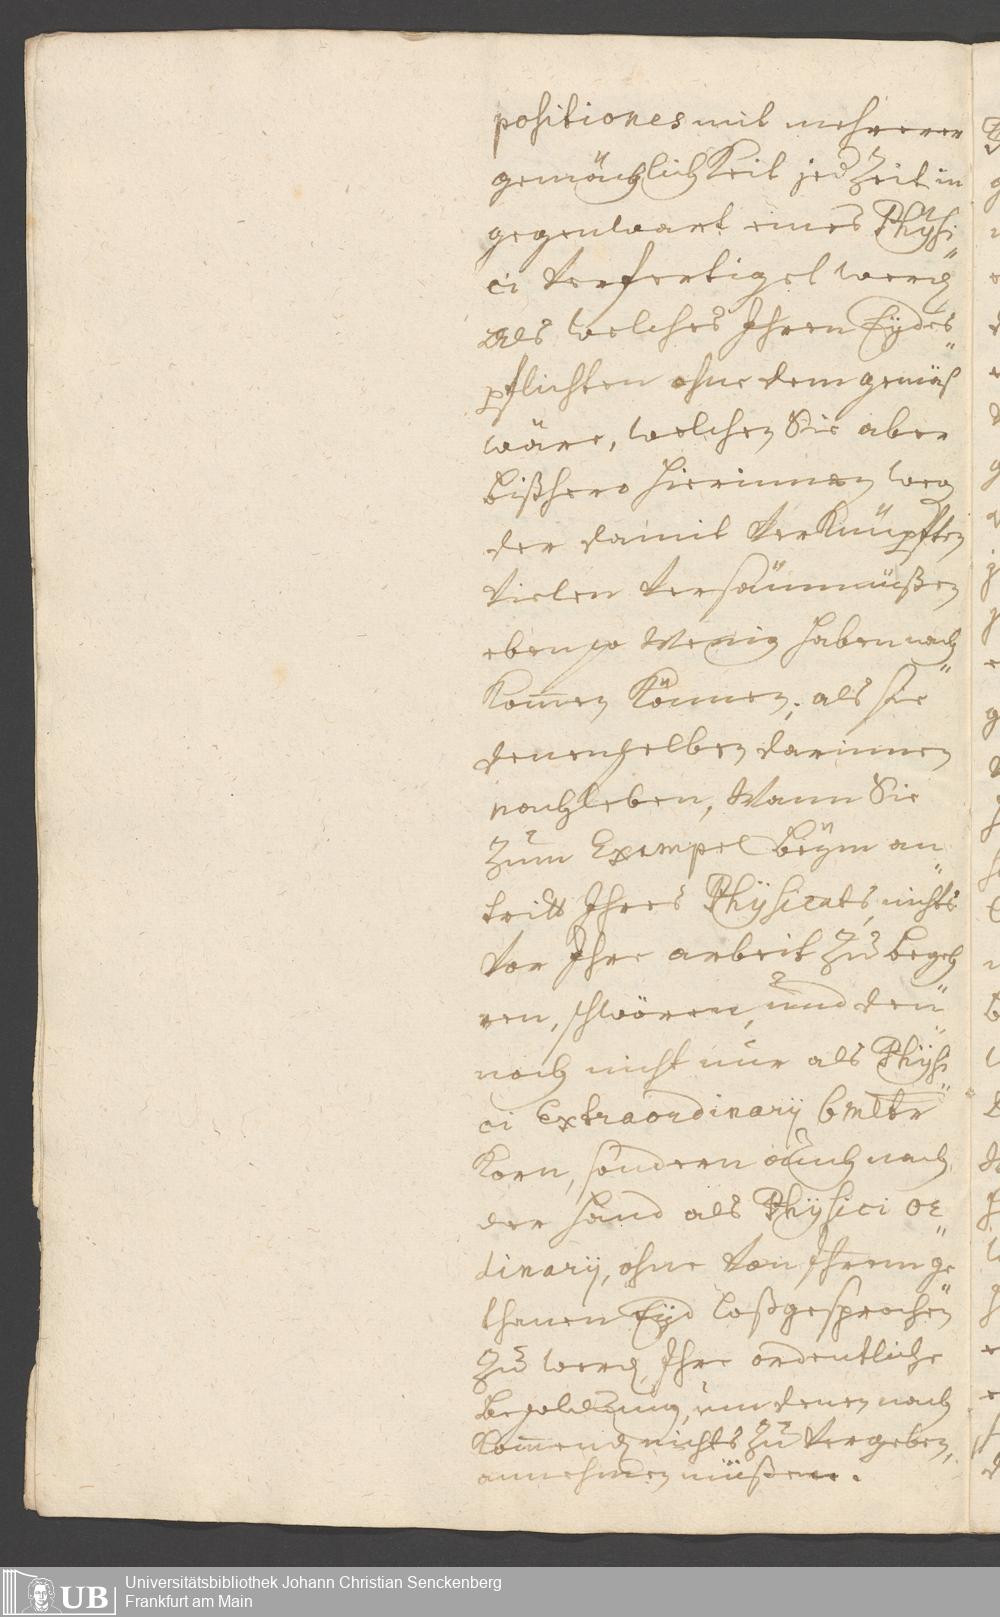 positiones mit mehrerer
gemächlichkeit jedzeit in
gegenwart eines Physi
ci verfertiget werd
als welches Ihren Eydes
pflichten ohne dem gemäs
wäre, welchen Sie aber
bißhero hierinnen weg
der damit verknüpften
vielen versäumnüßen
eben so wenig haben nach
komen können, als sie
denenselben darinnen
nachleben, wann Sie
zum Exempel beÿm an
tritt Ihres Physicats, nichts
vor Ihre arbeit zu begeh
ren, schwören, und den
noch nicht nur als Physi
ci Extraordinarÿ
Korn, sondern auch nach
der hand als Phÿsici or
dinarÿ, ohne von Ihrem ge
thanen Eÿd loßgesprochen
zu werd, Ihre ordentliche
Besoldung, um denen nach
komend nichts zu vergeben,
annehmen müßen.
Universitätsbibliothek Johann Christian Senckenberg
Frankfurt am Main
UB